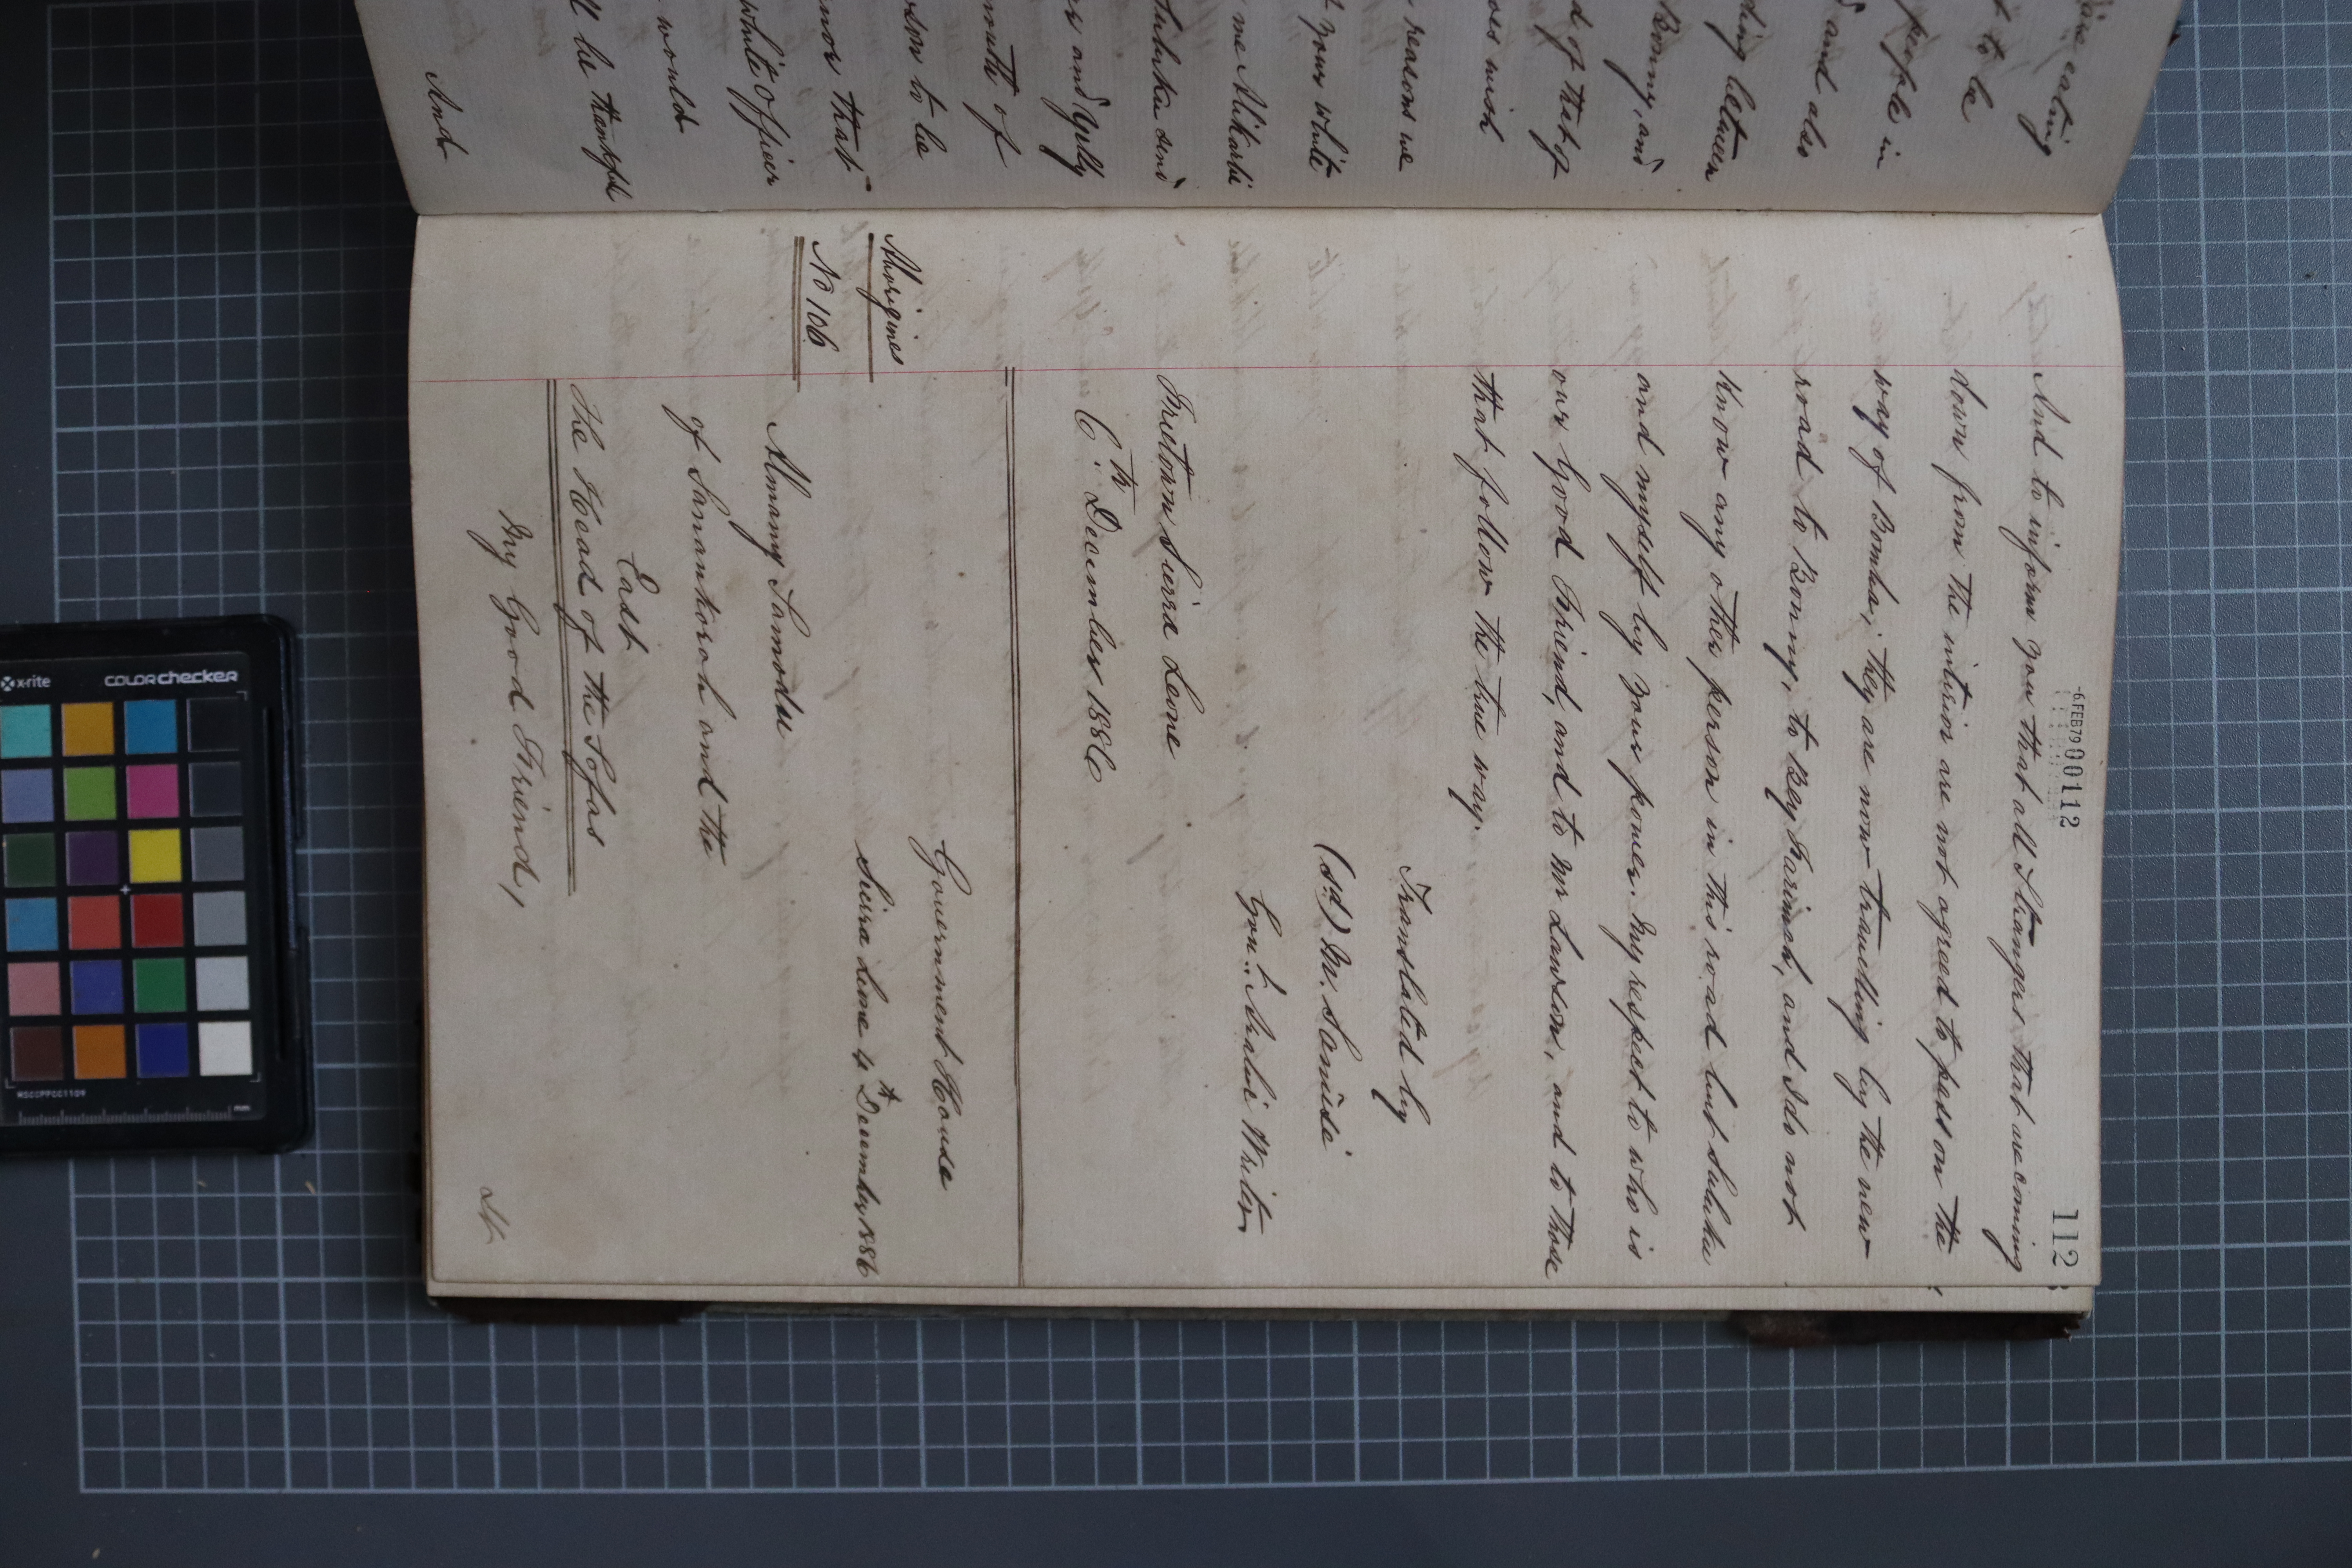 aire eating
t to be
people in
d and also
ding between
Bonny, and
d of that of
oes wish
reasons we
t your white
me Alikarli
Suluku send
ers and Gully
mouth of
son to be
nor that
white officer
would
ll be thankful
And
-6 FEB 79 000112
112
And to inform you that all Strangers that are coming
down from the interior are not agreed to pass on the
way of Bomba; they are now travelling by the new
road to Bonny, to Bey Farimah, and I do not
know any other person in this road but Suluku
and myself by your power. My respect to who is
our Good Friend, and to Mr Lawson, and to those
that follow the true way.
Translated by
(sd) M. Sanusie
Govt. Arabic Writer
Freetown Sierra Leone
6th. December 1886
Aborigines
No 106
Government House
Sierra Leone 4th December 1886
Almamy Samodu
of Sanankoroh and the
East
The Head of the Sofas
My Good Friend,
x-rite
COLORchecker
MSCCPPCC1109
mm